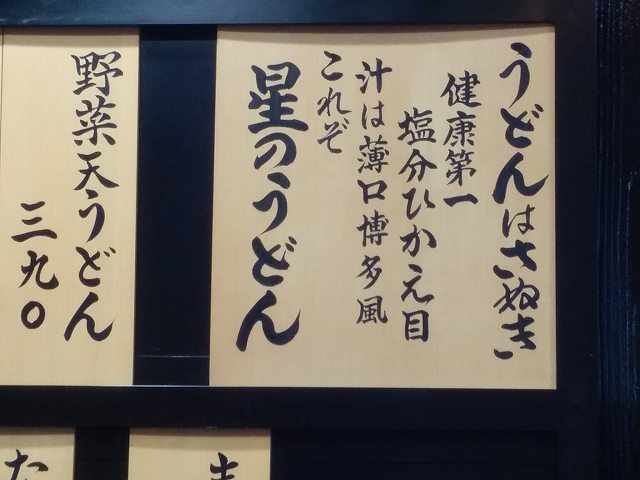 うどんはさぬき
健康第一
塩分ひかえ目
汁は薄口博多風
これぞ
星のうどん
野菜天うどん
三九〇
た